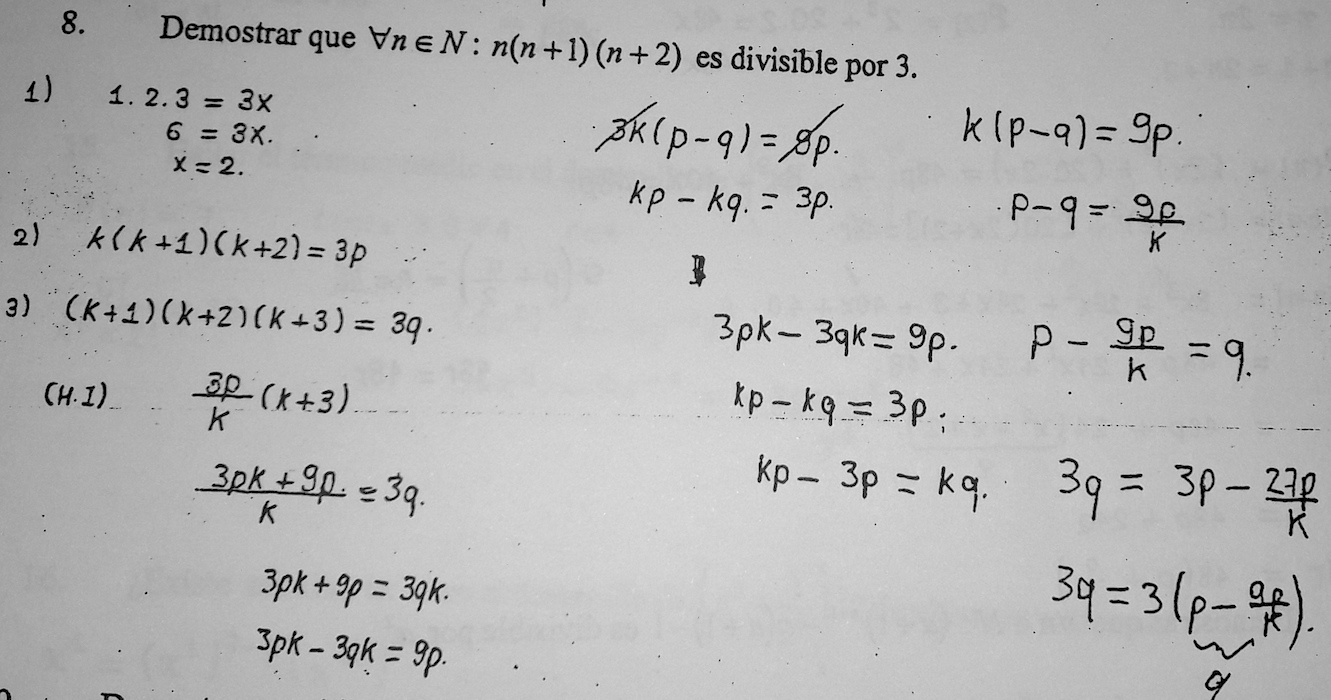 8. Demostrar que ∀n ∈ N : n(n+1)(n+2) es divisible por 3.
1) 1.2.3 = 3x
6 = 3x.
x = 2.
2) k(k+1)(k+2) = 3p
3) (k+1)(k+2)(k+3) = 3q.
(H.I) 3p/k (k+3)
(3pk + 9p.)/k = 3q.
3pk + 9p = 3qk.
3pk – 3qk = 9p.
3k(p–q) = 9p.
kp – kq = 3p.
3pk – 3qk = 9p.
kp – kq = 3p.
kp – 3p = kq.
k(p–q) = 9p.
p–q = 9p/k
p – 9p/k = q.
3q = 3p – 27p/k
3q = 3(p – 9p/k).
q